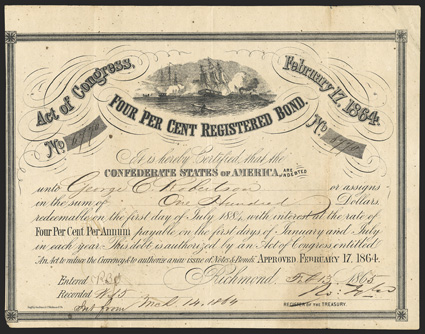 Act of Congress,
February 17, 1864.
FOUR PER CENT REGISTERED BOND.
No
No
It is hereby Certified, that the
CONFEDERATE STATES OF AMERICA, ARE INDEBTED
unto George C Robertson or assigns
in the sum of One Hundred Dollars
redeemable on the first day of July 1884, with interest at the rate of
Four Per Cent Per Annum payable on the first days of January and July
in each year. This debt is authorized by an Act of Congress entitled
An Act to reduce the Currency & to authorize a new issue of Notes & Bonds APPROVED FEBRUARY 17, 1864.
Richmond, Feb 13 1865
Entered
Recorded
REGISTER OF THE TREASURY.
Int from 14. 1864